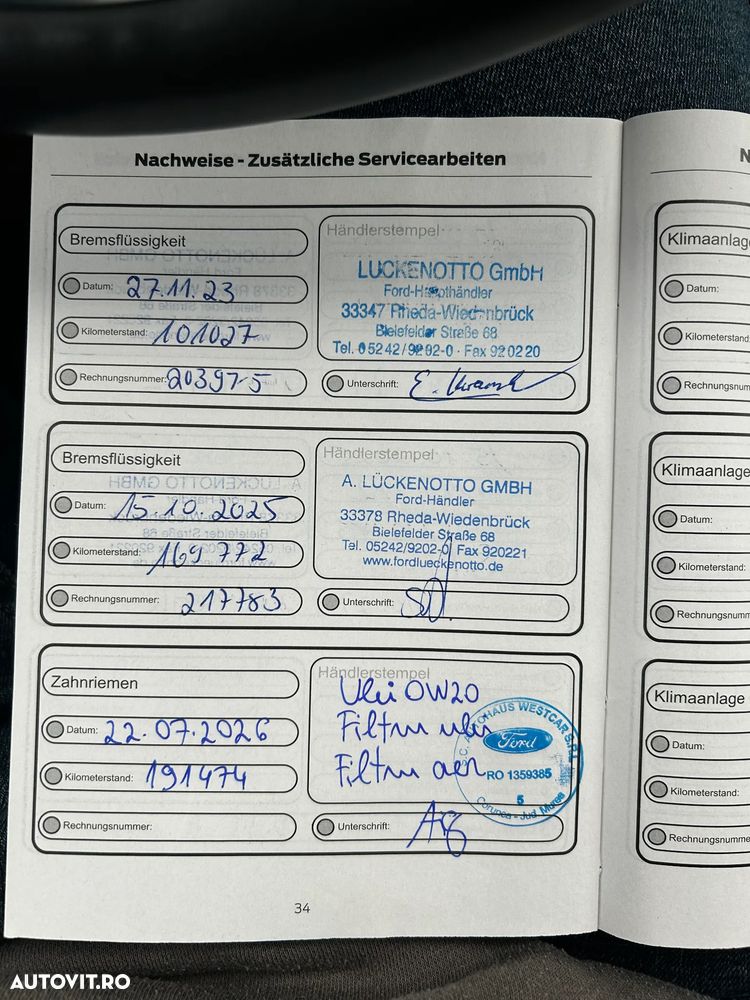 Nachweise - Zusätzliche Servicearbeiten
Bremsflüssigkeit
Datum: 27.11.23
Kilometerstand: 101027
Rechnungsnummer: 203975
Händlerstempel
LÜCKENOTTO GmbH
Ford-Haupthändler
33347 Rheda-Wiedenbrück
Bielefelder Straße 68
Tel. 05242/9202-0 · Fax 920220
Unterschrift:
Bremsflüssigkeit
Datum: 15.10.2025
Kilometerstand: 169772
Rechnungsnummer: 217783
Händlerstempel
A. LÜCKENOTTO GMBH
Ford-Händler
33378 Rheda-Wiedenbrück
Bielefelder Straße 68
Tel. 05242/9202-0, Fax 920221
www.fordlueckenotto.de
Unterschrift:
Zahnriemen
Datum: 22.07.2026
Kilometerstand: 191474
Rechnungsnummer:
Händlerstempel
Ulei 0W20
Filtru ulei
Filtru aer
S.C. AUTOHAUS WESTCAR S.R.L
Ford
RO 1359385
5
Corunca - Jud. Mures
Unterschrift:
34
N
Klimaanlage
Datum:
Kilometerstand:
Rechnungsnum
Klimaanlage
Datum:
Kilometerstand:
Rechnungsnumm
Klimaanlage
Datum:
Kilometerstand:
Rechnungsnumme
AUTOVIT.RO